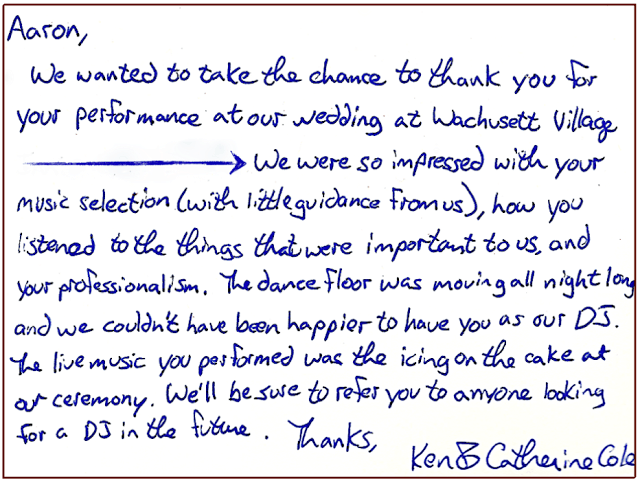 Aaron,
We wanted to take the chance to thank you for
your performance at our wedding at Wachusett Village
We were so impressed with your
music selection (with little guidance from us), how you
listened to the things that were important to us, and
your professionalism. The dance floor was moving all night long
and we couldn't have been happier to have you as our DJ.
The live music you performed was the icing on the cake at
our ceremony. We'll be sure to refer you to anyone looking
for a DJ in the future. Thanks,
Ken & Catherine Cole